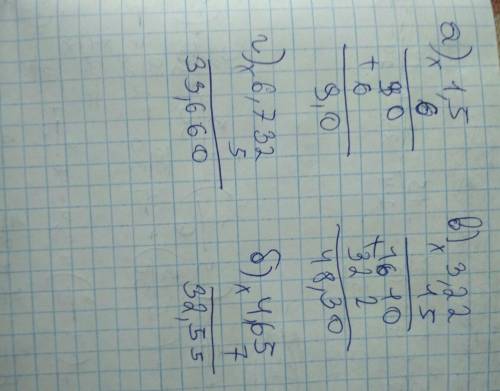 а) 1,5
× 6
90
+ 6
9,0
б) 4,65
× 7
32,55
в) 3,22
× 15
1610
+
322
48,30
г) 6,732
× 5
33,660